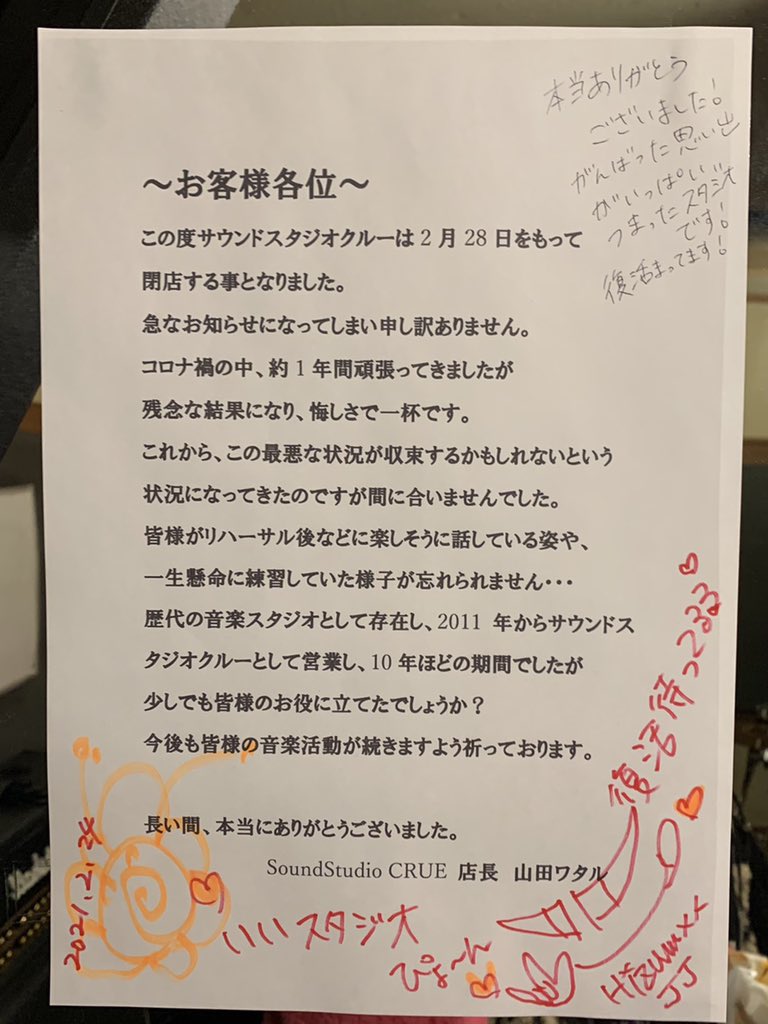 本当ありがとう
ございました!
がんばった思い出
がいっぱい
つまったスタジオ
です!
復活まってます!
～お客様各位～
この度サウンドスタジオクルーは2月28日をもって
閉店する事となりました。
急なお知らせになってしまい申し訳ありません。
コロナ禍の中、約1年間頑張ってきましたが
残念な結果になり、悔しさで一杯です。
これから、この最悪な状況が収束するかもしれないという
状況になってきたのですが間に合いませんでした。
皆様がリハーサル後などに楽しそうに話している姿や、
一生懸命に練習していた様子が忘れられません・・・
歴代の音楽スタジオとして存在し、2011 年からサウンドス
タジオクルーとして営業し、10年ほどの期間でしたが
少しでも皆様のお役に立てたでしょうか？
今後も皆様の音楽活動が続きますよう祈っております。
長い間、本当にありがとうございました。
SoundStudio CRUE 店長 山田ワタル
復活待ってるる
2021.2.24
いいスタジオ
ぴょ〜ん
JJ